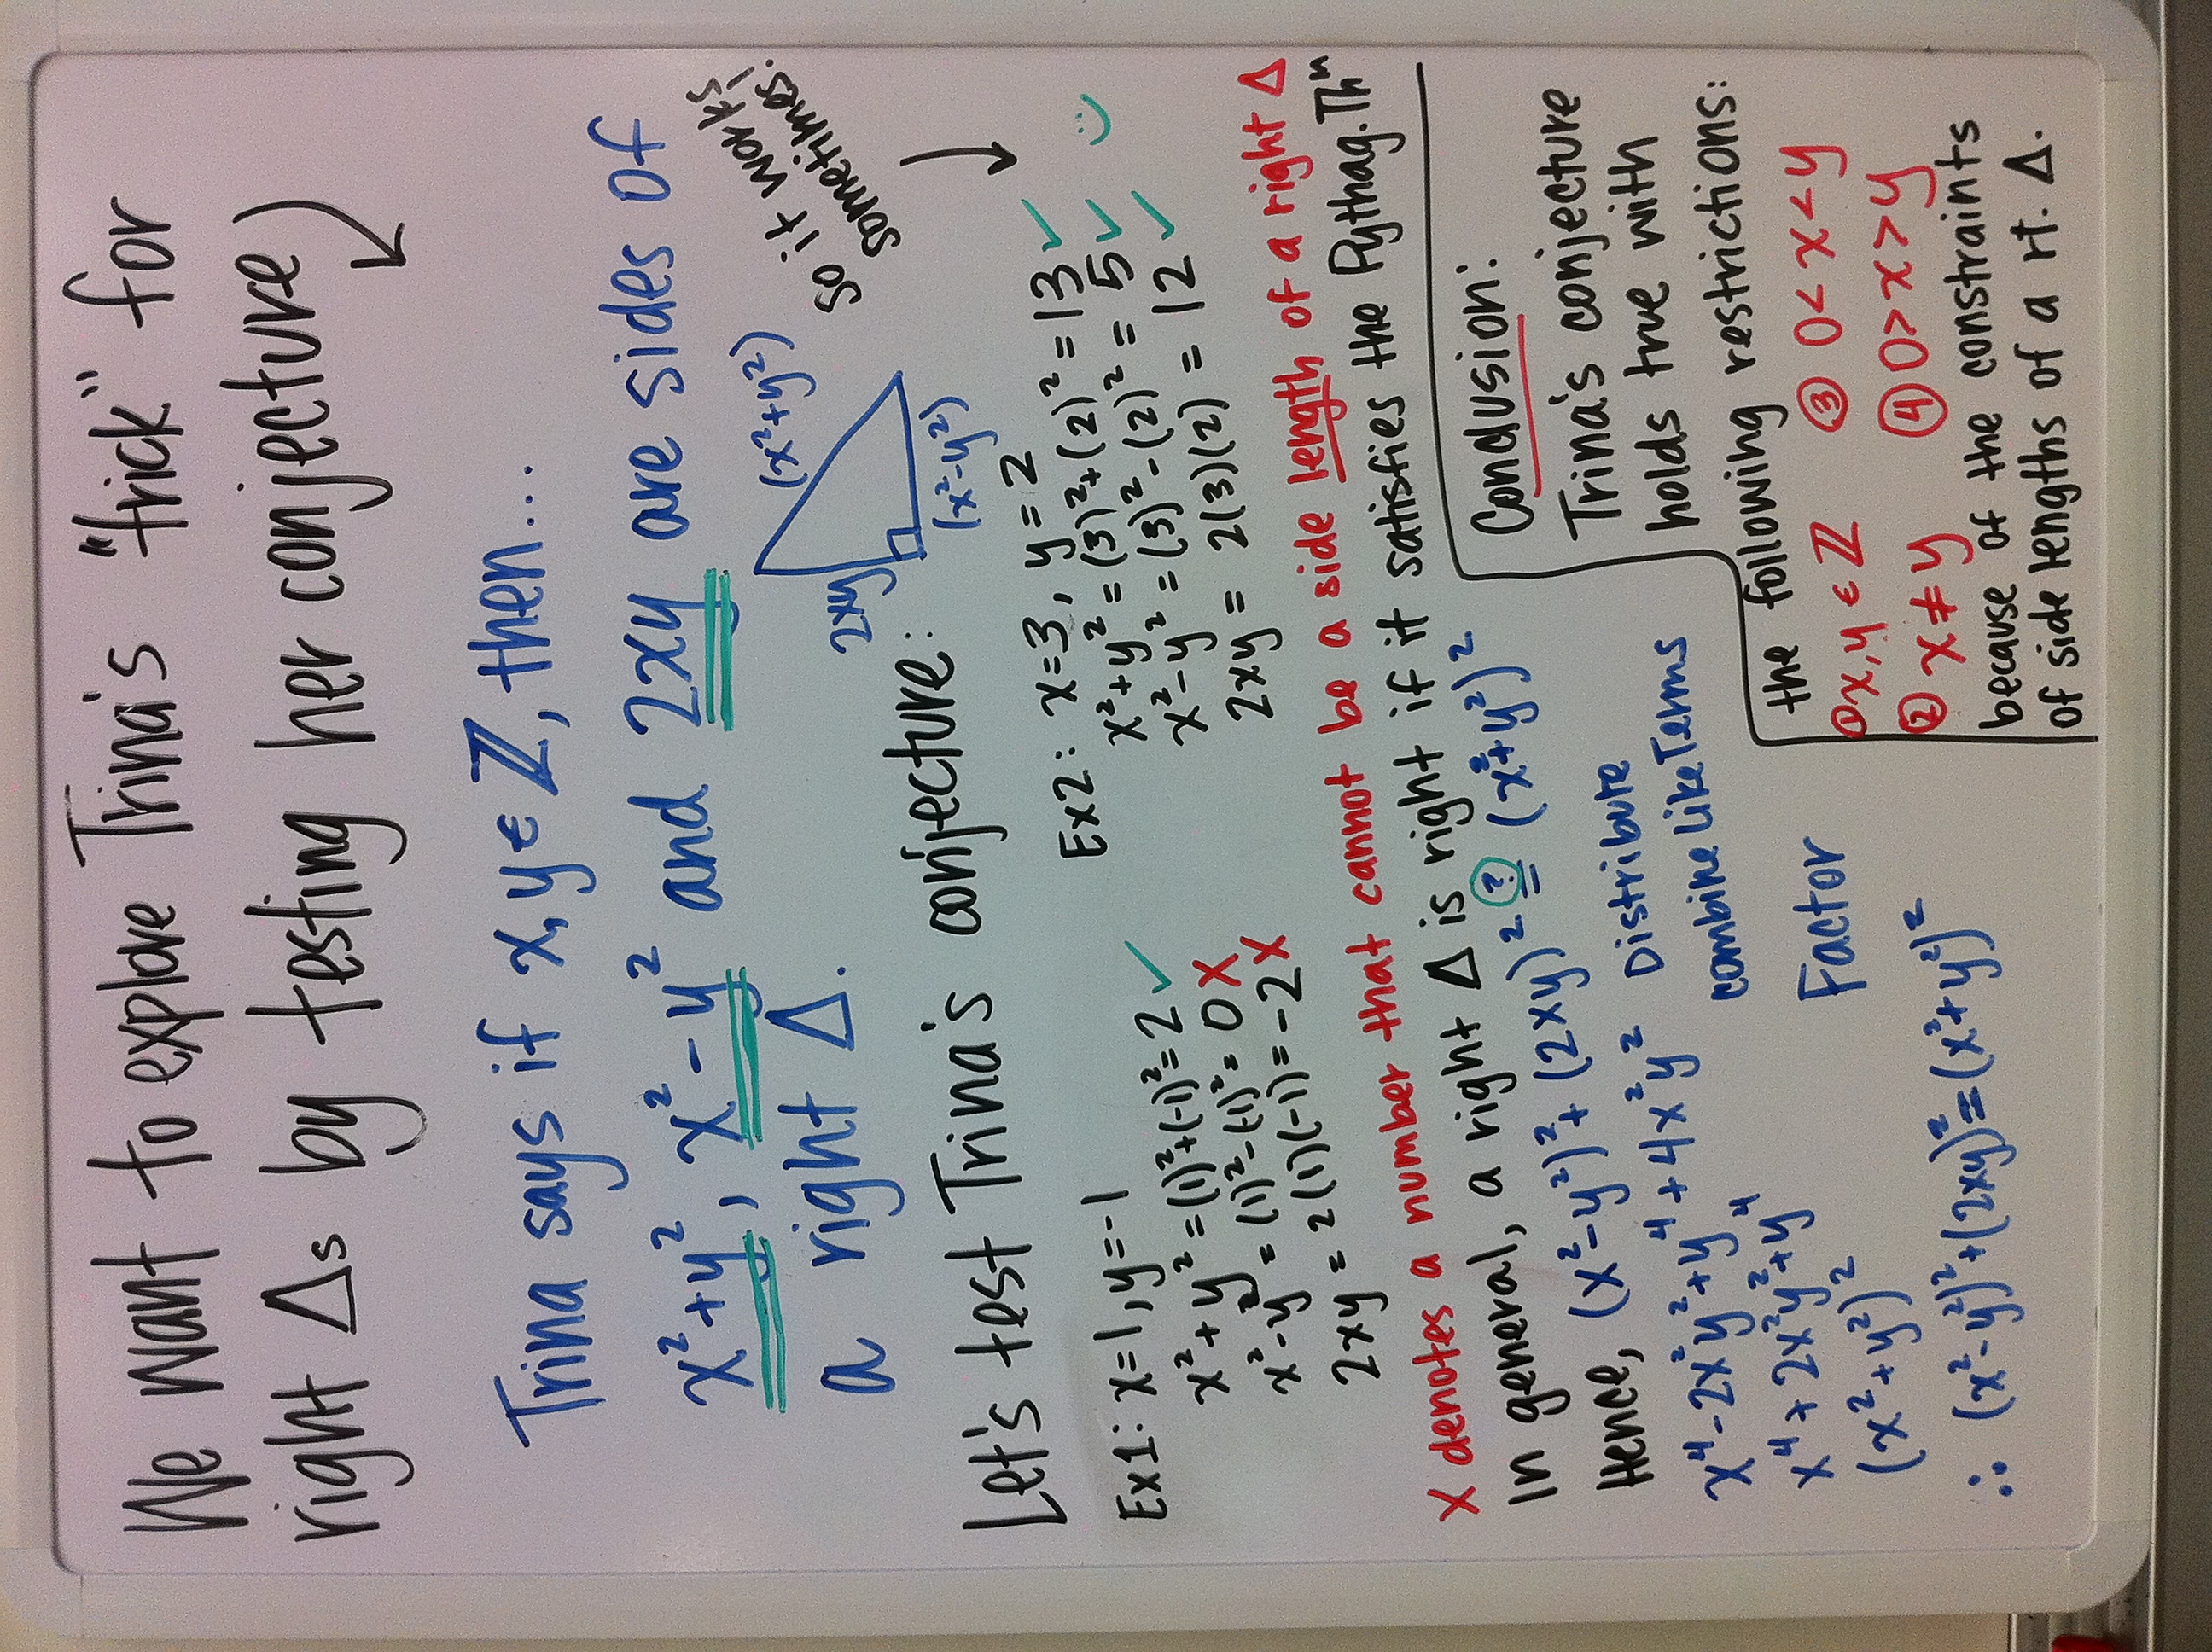 We want to explore Trina's "trick" for
right Δs by testing her conjecture)
Trina says if x, y ∈ ℤ, then...
x²+y², x²-y² and 2xy are sides of
a right Δ.
(x²+y²)
2xy
(x²-y²)
so it works
sometimes!
Let's test Trina's conjecture:
Ex1: x=1, y=-1
x²+y²=(1)²+(-1)²=2 ✓
x²-y²=(1)²-(-1)²=0 X
2xy=2(1)(-1)=-2 X
Ex2: x=3, y=2
x²+y²=(3)²+(2)²=13 ✓
x²-y²=(3)²-(2)²=5 ✓
2xy=2(3)(2)=12 ✓
X denotes a number that cannot be a side length of a right Δ
In general, a right Δ is right if it satisfies the Pythag. Thm
Hence, (x²-y²)²+(2xy)² ≟ (x²+y²)²
x⁴-2x²y²+y⁴+4x²y² Distribute
x⁴+2x²y²+y⁴ combine Like Terms
(x²+y²)² Factor
∴ (x²-y²)²+(2xy)²=(x²+y²)²
Conclusion:
Trina's conjecture
holds true with
the following restrictions:
① x,y ∈ ℤ ③ 0<x<y
② x≠y ④ 0>x>y
because of the constraints
of side lengths of a rt. Δ.